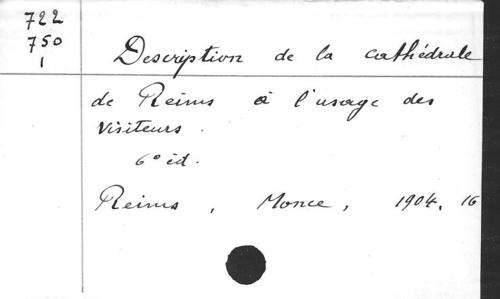 722
750
1
Description de la cathédrale
de Reims à l'usage des
visiteurs.
6° éd.
Reims, Monce, 1904, 16